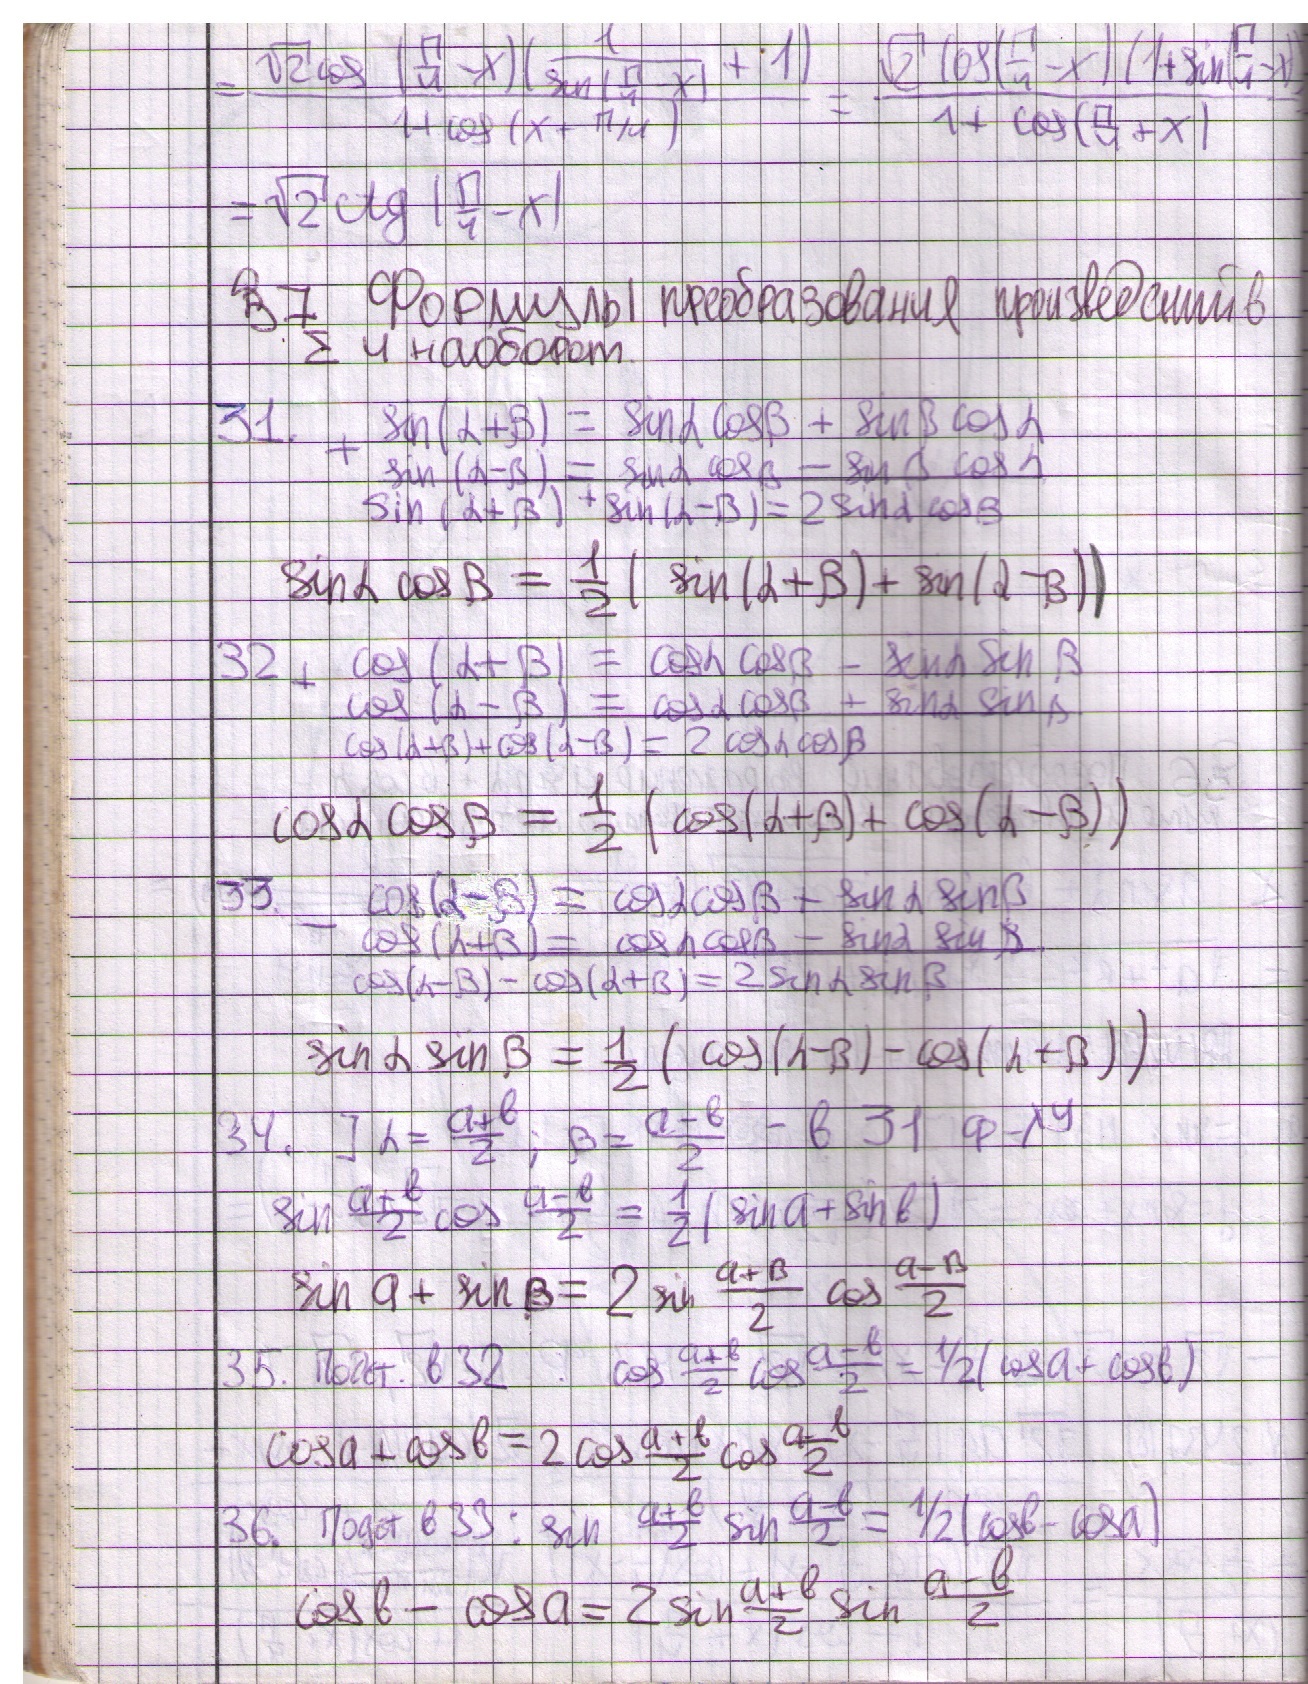 = √2 cos(π/4 − x)(1/sin(π/4 − x) + 1) / 1 + cos(x + π/4) = √2 cos(π/4 − x)(1 + sin(π/4 − x) / 1 + cos(π/4 + x)
= √2 ctg(π/4 − x)
§7 Формулы преобразования произведений в
Σ и наоборот.
31. + sin(α+β) = sinα cosβ + sinβ cosα
sin(α−β) = sinα cosβ − sinβ cosα
sin(α+β) + sin(α−β) = 2 sinα cosβ
sinα cosβ = 1/2 (sin(α+β) + sin(α−β))
32 + cos(α+β) = cosα cosβ − sinα sinβ
cos(α−β) = cosα cosβ + sinα sinβ
cos(α+β) + cos(α−β) = 2 cosα cosβ
cosα cosβ = 1/2 (cos(α+β) + cos(α−β))
33. − cos(α−β) = cosα cosβ + sinα sinβ
cos(α+β) = cosα cosβ − sinα sinβ
cos(α−β) − cos(α+β) = 2 sinα sinβ
sinα sinβ = 1/2 (cos(α−β) − cos(α+β))
34. ] α = a+b/2 ; β = a−b/2 − в 31 ф-лу
sin a+b/2 cos a−b/2 = 1/2 (sin a + sin b)
sin a + sin β = 2 sin a+β/2 cos a−β/2
35. в 32 : cos a+b/2 cos a−b/2 = 1/2 (cos a + cos b)
cos a + cos b = 2 cos a+b/2 cos a−b/2
36. Подст в 33 : sin a+b/2 sin a−b/2 = 1/2 (cos b − cos a)
cos b − cos a = 2 sin a+b/2 sin a−b/2